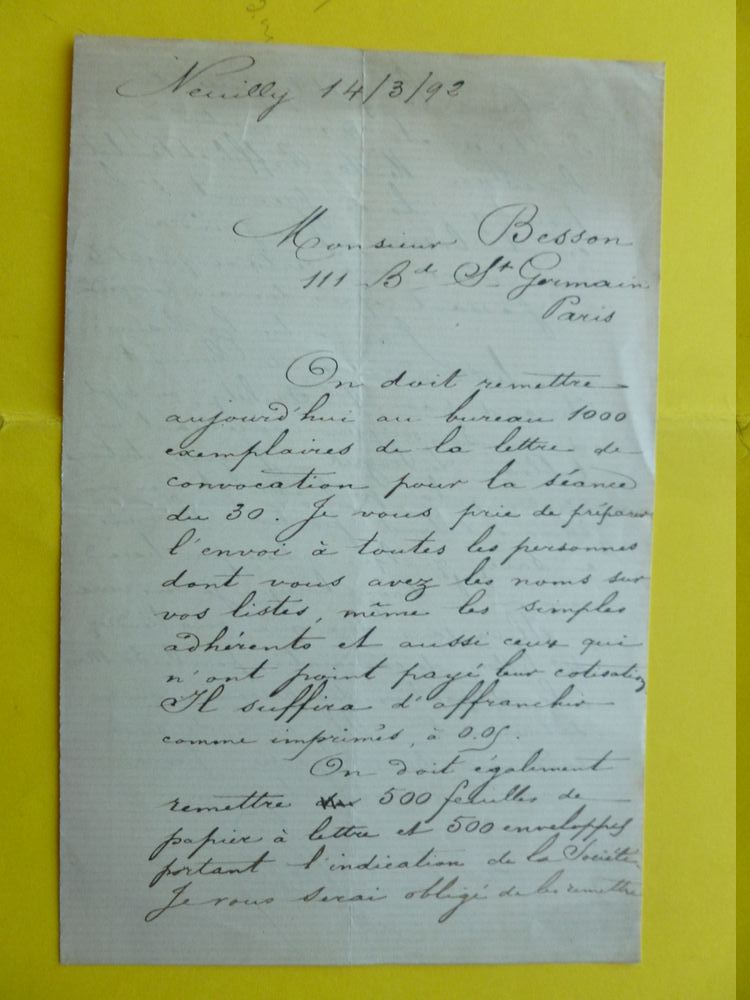 Neuilly 14/3/92
Monsieur Besson
111 Bd St Germain
Paris
On doit remettre
aujourd'hui au bureau 1000
exemplaires de la lettre de
convocation pour la séance
du 30. Je vous prie de préparer
l'envoi à toutes les personnes
dont vous avez les noms sur
vos listes, même les simples
adhérents et aussi ceux qui
n'ont point payé leur cotisation
Il suffira d'affranchir
comme imprimés, à 0.05.
On doit également
remettre 500 feuilles de
papier à lettre et 500 enveloppes
portant l'indication de la Société.
Je vous serai obligé de les remettre